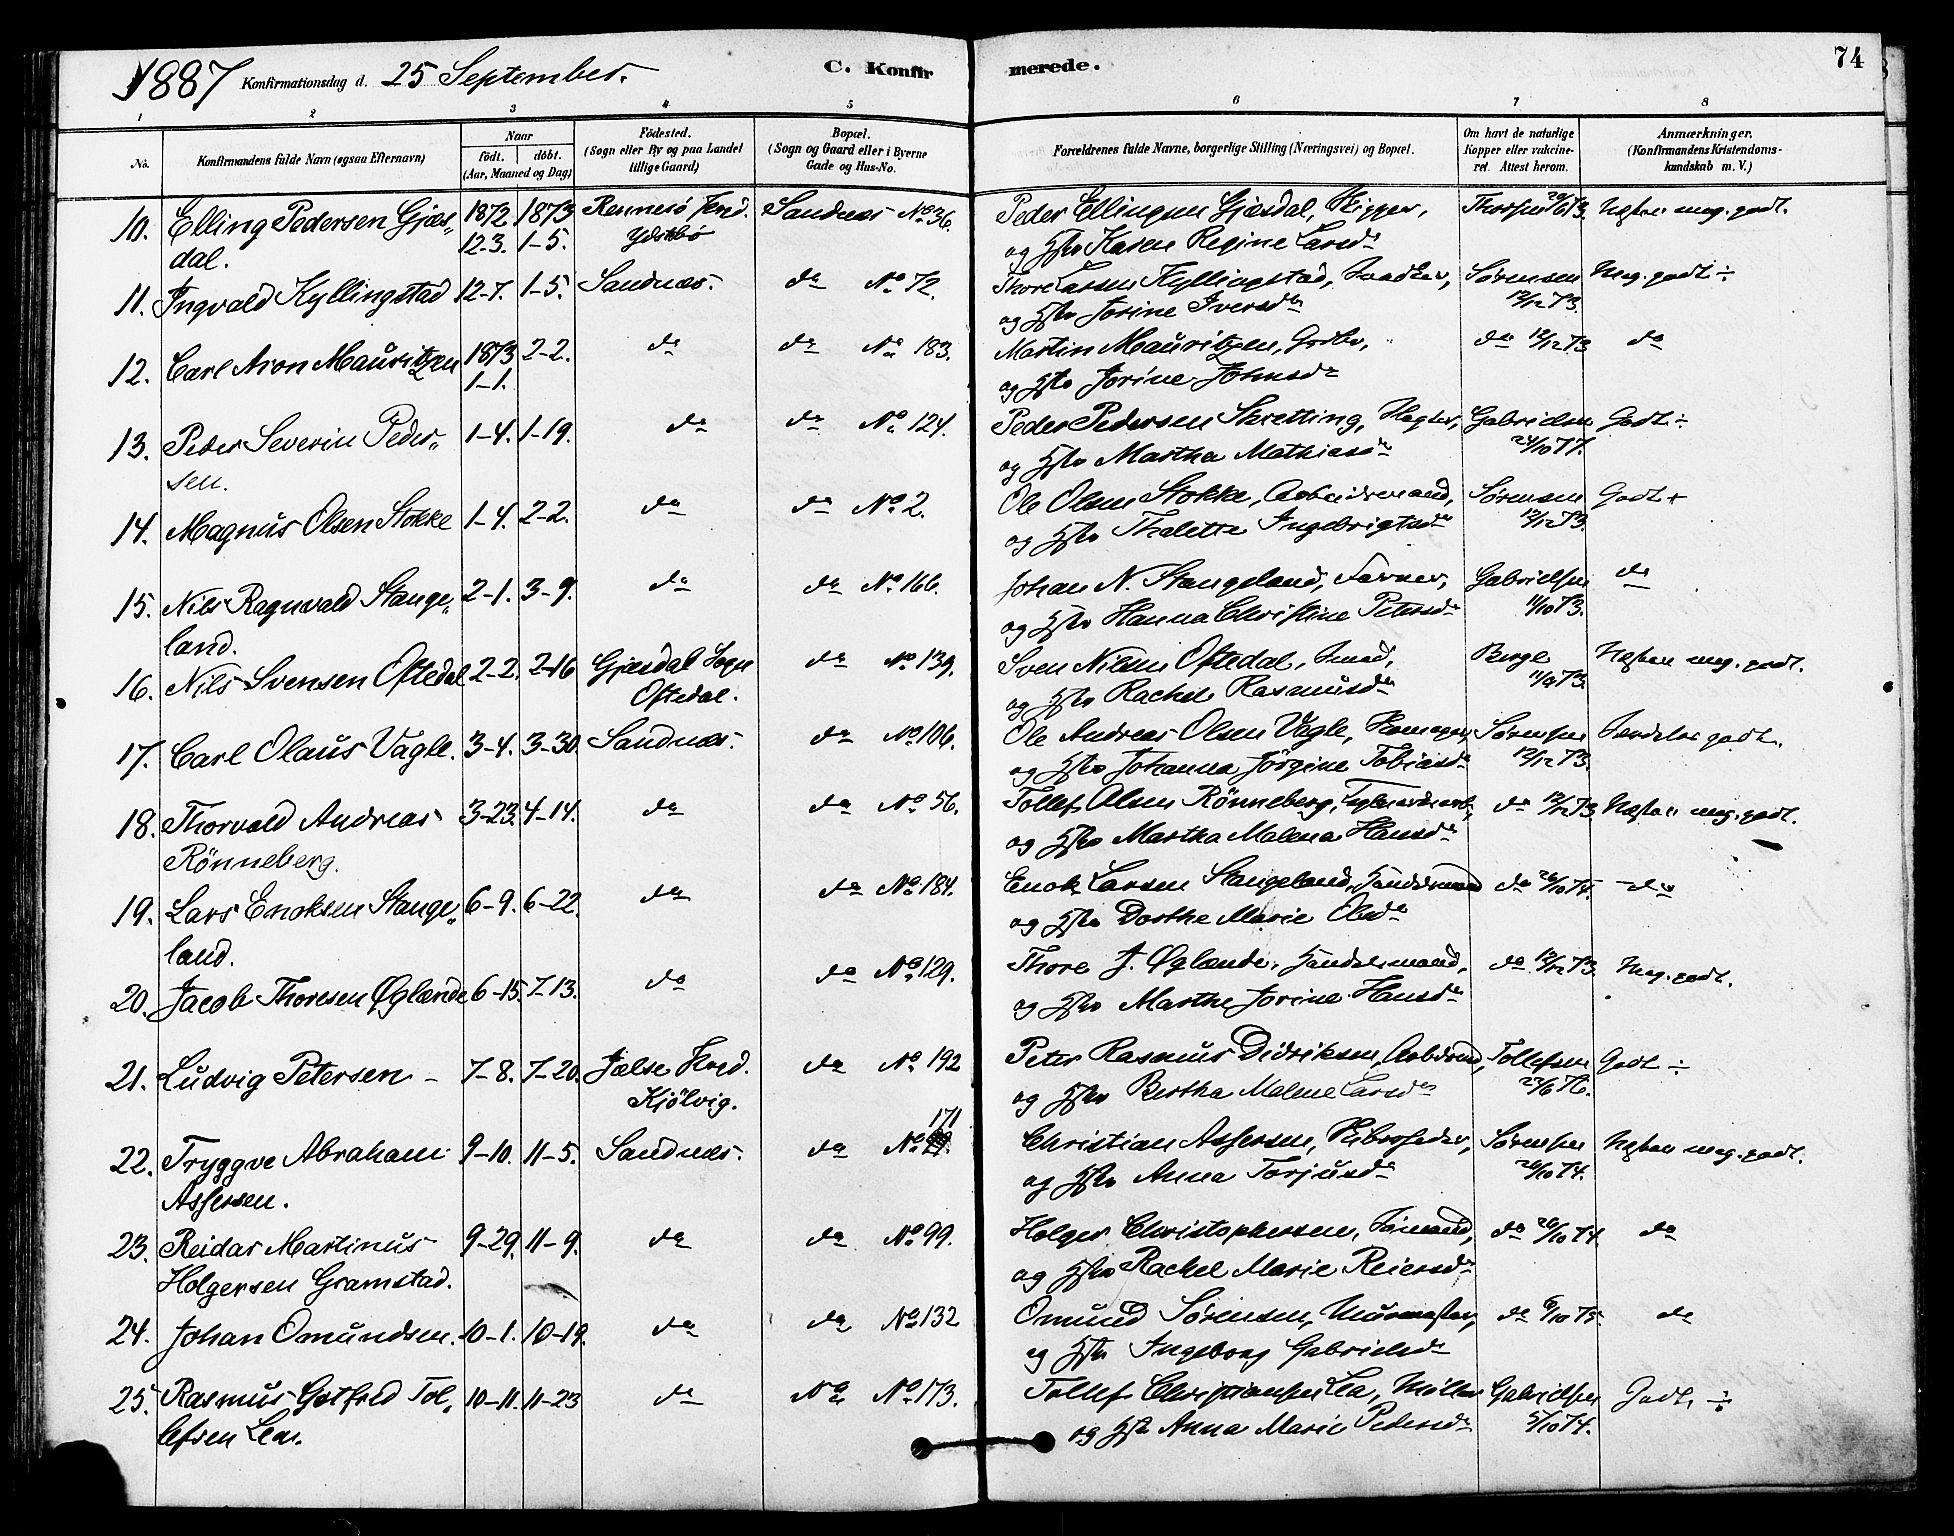 1887 Konfirmationsdag d. 25 September. C. Konfirmerede. 74
1 2 3 4 5 6 7 8
No. Konfirmandens fulde Navn (ogsaa Efternavn) Naar födt. döbt. (Aar, Maaned og Dag) Födested. (Sogn eller By og paa Landet tillige Gaard) Bopæl. (Sogn og Gaard eller i Byerne Gade og Hus-No. Forældrenes fulde Navne, borgerlige Stilling (Næringsvei) og Bopæl. Om havt de naturlige Kopper eller vakcineret. Attest herom. Anmærkninger. (Konfirmandens Kristendomskundskab m. V.)
10. Elling Pedersen Gjæs- 1872 1873 Rennesö Sandnæs No 36. Peder Ellingsen Gjæsdal, Skipper, Næsten meg. godt.
dal. 12-3. 1-5. Ydstebö og Hstr Karen Regine Larsdr
11. Ingvald Kyllingstad 12-7. 1-5. Sandnæs. do No 72. Thore Larsen Kyllingstad, Snedker, Sørensen Meg. godt ÷
og Hstr Jorine Iversdr 12/12 73.
12. Carl Aron Mauritzen 1873 2-2. do do No 183. Martin Mauritzen, do 12/12 73 do
1-1. og Hstr Jorine Johnsdr
13. Peder Severin Peder- 1-4. 1-19. do do No 124. Peder Pedersen Skretting, Gabrielsen Godt ÷
sen. og Hstr Martha Mathiasdr 24/10 77.
14. Magnus Olsen Stokke 1-4. 2-2. do do No 2. Ole Olsen Stokke, Arbeidsmand, Sørensen Godt +
og Hstr Thalette Ingebrigtsdr 12/12 73.
15. Nils Ragnvald Stange- 2-1. 3-9. do do No 166. Johan N. Stangeland, Farver, Gabrielsen do
land. og Hstr Hanna Christine Petersdr 11/10 73.
16. Nils Svensen Oftedal 2-2. 2-16 Gjæsdal Sogn do No 139. Sven Nilsen Oftedal, Smed, Berge Næsten meg. godt.
Oftedal. og Hstr Rachel Rasmusdr
17. Carl Olaus Vagle. 3-4. 3-30. Sandnæs. do No 106. Ole Andreas Olsen Vagle, Sørensen Særdeles godt.
og Hstr Johanna Jörgine Tobiasdr 12/12 73.
18. Thorvald Andreas 3-23. 4-14. do do No 56. Tollef Olsen Rönneberg, do 12/12 73 Næsten meg. godt.
Rönneberg. og Hstr Martha Malena Hansdr
19. Lars Enoksen Stange- 6-9. 6-22. do do No 184. Enok Larsen Stangeland, Handelsmand do 26/10 74. do
land. og Hstr Dorthe Marie Olsdr
20. Jacob Thoresen Øglænde 6-15. 7-13. do do No 129. Thore J. Øglænde, Handelsmand, do 12/12 73 Meg. godt.
og Hstr Marthe Jorine Hansdr
21. Ludvig Petersen 7-8. 7-20. Jælse do No 192 Peter Rasmus Didriksen, Arbdmd, Tollefsen Godt ÷
Kjölvig. og Hstr Bertha Malene Larsdr
171
22. Tryggve Abraham 9-10. 11-5. Sandnæs. do No Christian Assersen, Skibsreder, Sørensen Næsten meg. godt.
Assersen. og Hstr Anna Torjusdr 26/10 74.
23. Reidar Martinus 9-29. 11-9. do do No 99. Holger Christophersen, Sömand, do 26/10 74. do
Holgersen Gramstad. og Hstr Rachel Marie Reiersdr
24. Johan Omundsen. 10-1. 10-19. do do No 132 Omund Sörensen, Murmester, do do
og Hstr Ingeborg Gabrielsdr
25. Rasmus Gotfred Tol- 10-11. 11-23 do No No 173. Tollef Christiansen Lea, Möller Gabrielsen Godt. ÷
lefsen Lea. og Hstr Anna Marie Pedersdr 5/10 74.